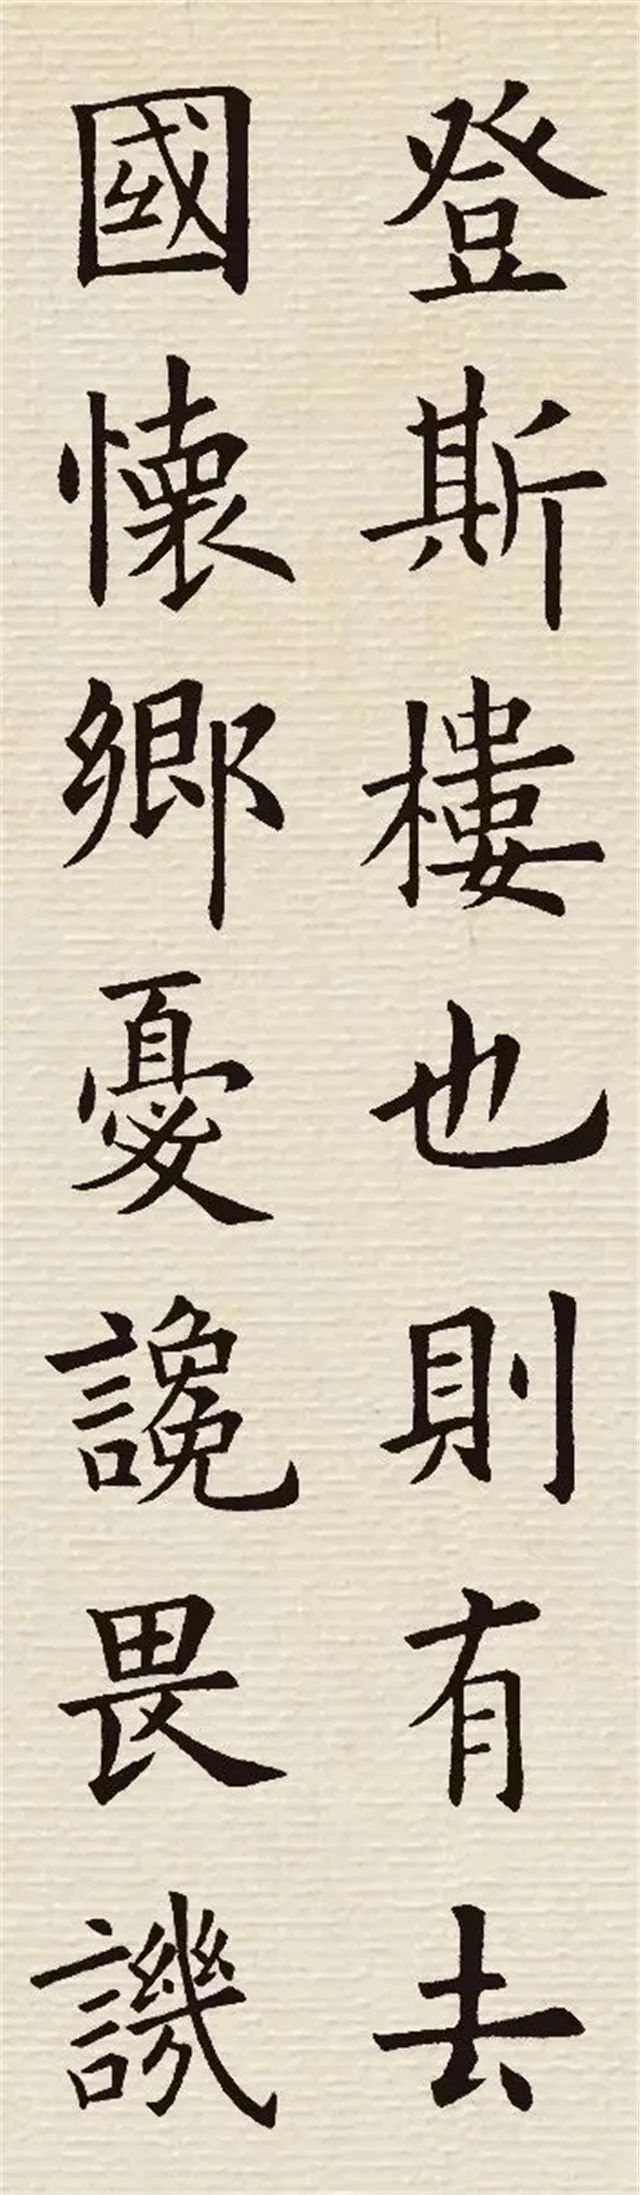 登斯樓也則有去
國懷鄉憂讒畏譏